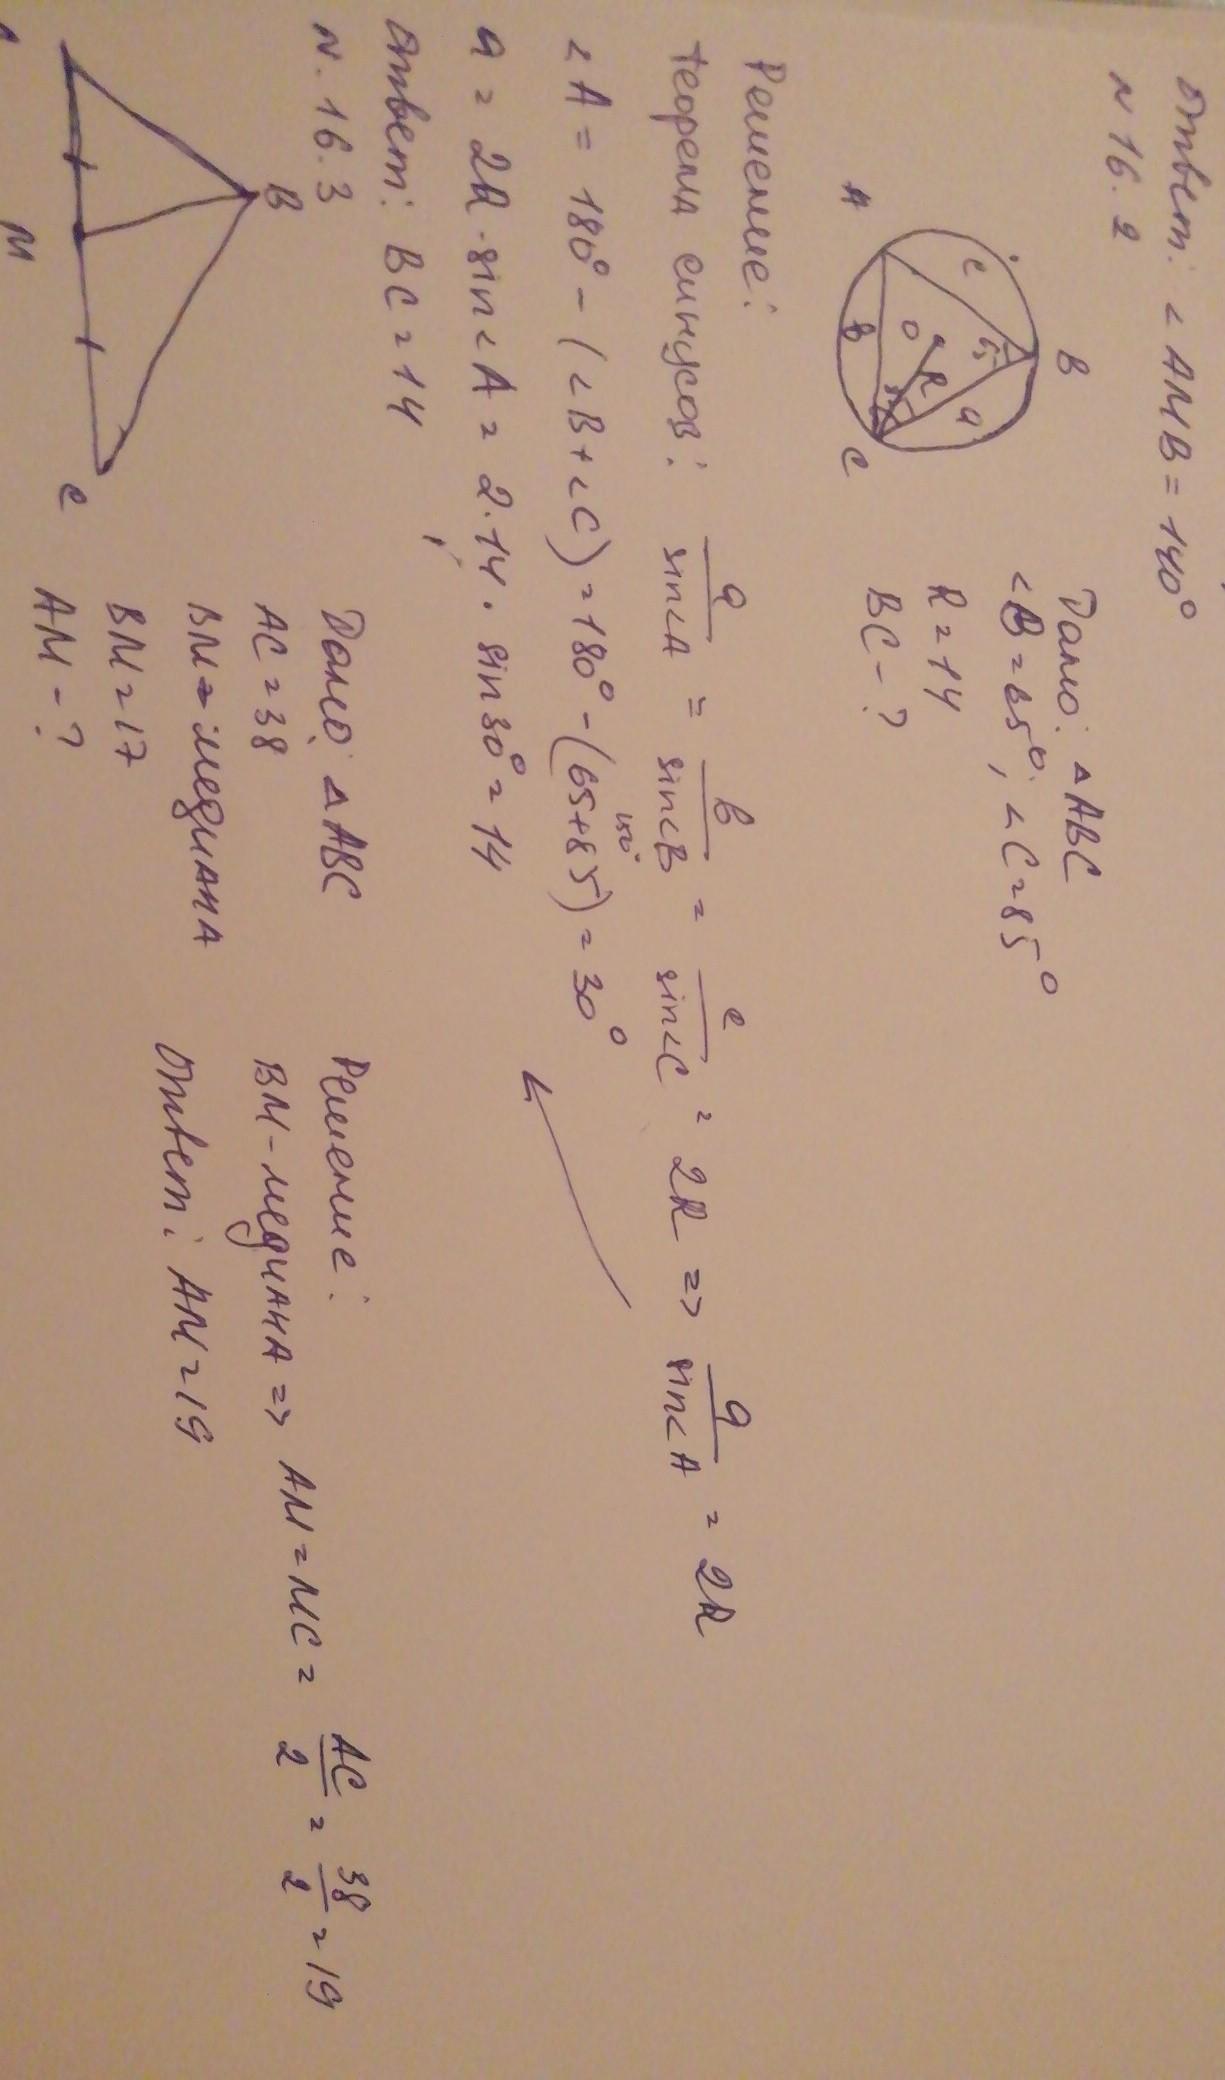 Ответ: <AMB = 140°
N 16.2
A
B
C
c
a
b
O
R
65
85
Дано: △ABC
<B = 65°, <C = 85°
R = 14
BC - ?
Решение:
теорема синусов: a/sin<A = b/sin<B = c/sin<C = 2R => a/sin<A = 2R
<A = 180° - (<B + <C) = 180° - (65+85) = 30°
150°
a = 2R · sin<A = 2·14 · sin30° = 14
Ответ: BC = 14
N. 16.3
B
M
C
Дано: △ABC
AC = 38
BM = медиана
BM = 17
AM - ?
Решение:
BM - медиана => AM = MC = AC/2 = 38/2 = 19
Ответ: AM = 19